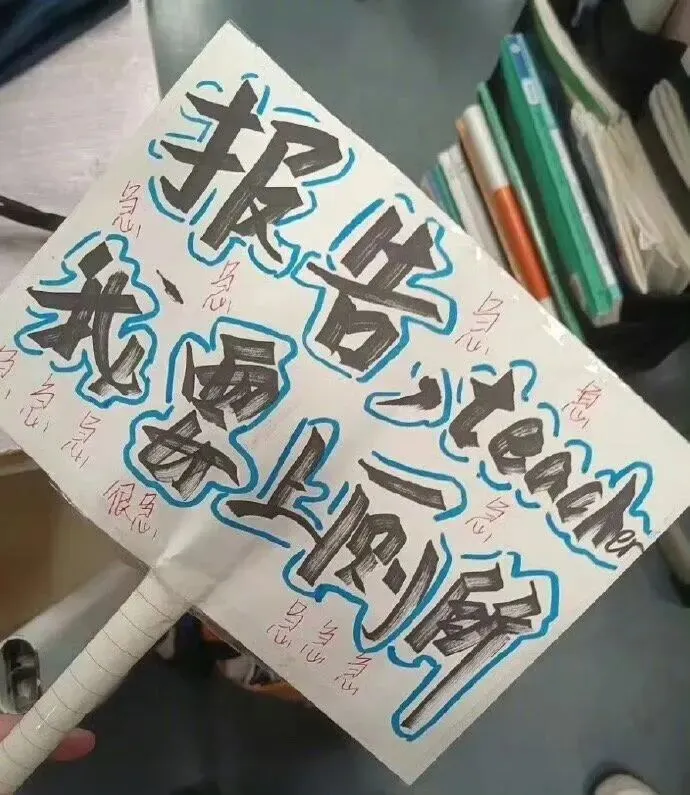 报告，teacher
我要上厕所
急
急
急
急
急
急
急
急
很急
急
急
急